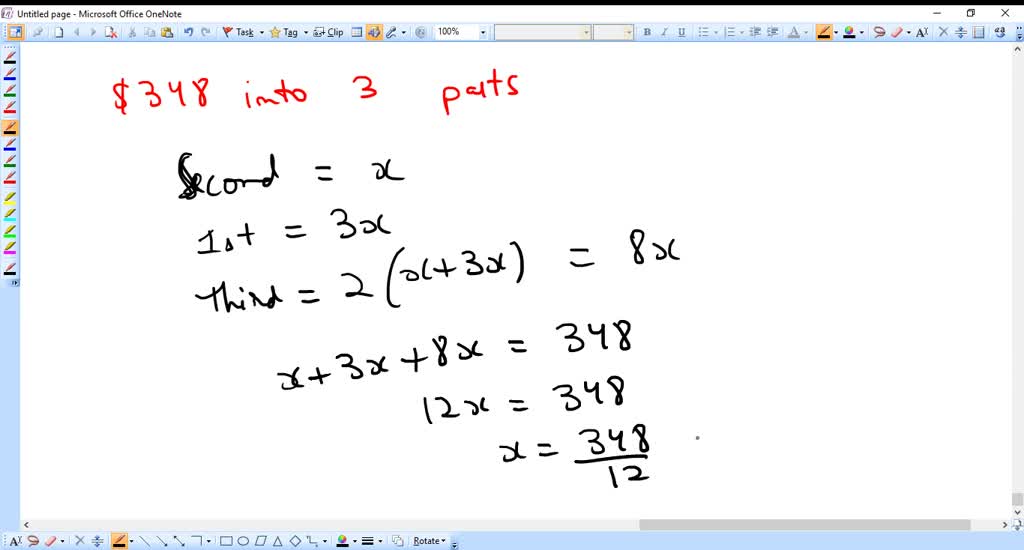 Untitled page - Microsoft Office OneNote
Task Tag Clip 100% B I U
$348 into 3 parts
Second = x
1st = 3x
third = 2(x+3x) = 8x
x+3x+8x = 348
12x = 348
x = 348/12
Rotate